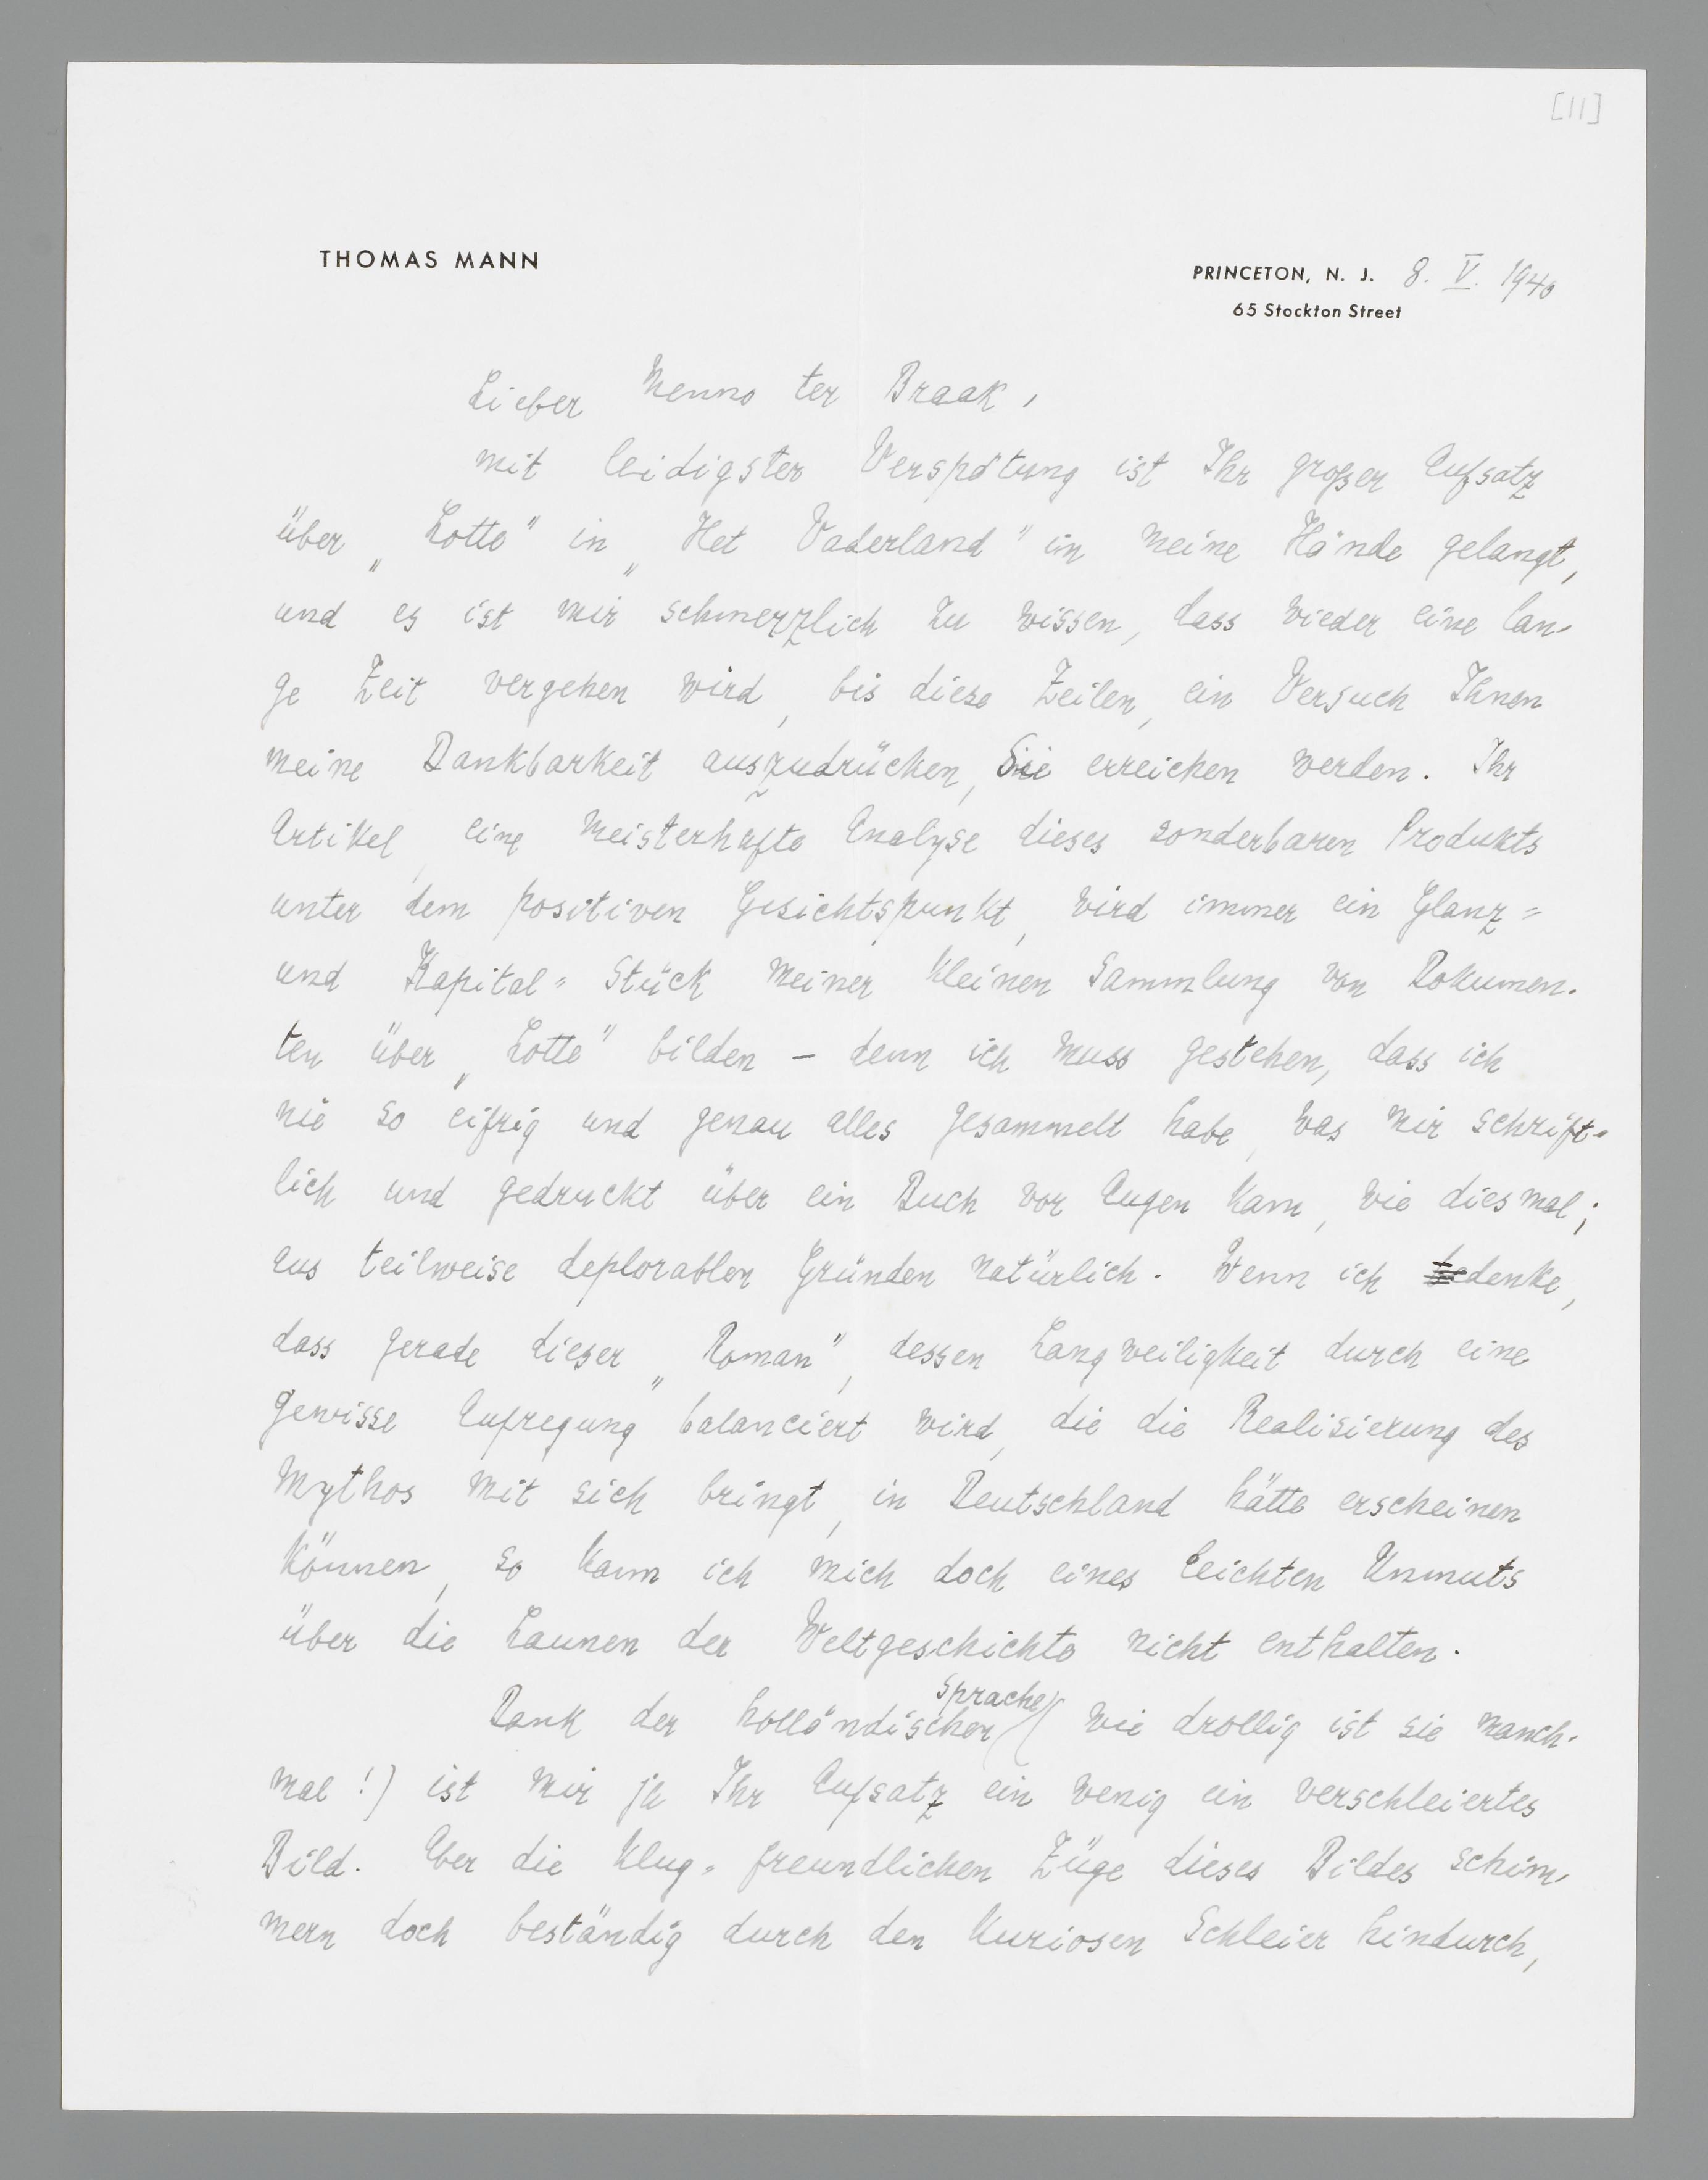 [11]
THOMAS MANN
PRINCETON, N. J. 8. V. 1940
65 Stockton Street
Lieber Menno ter Braak,
mit leidigster Verspätung ist Ihr großer Aufsatz
über „Lotte" in „Het Vaderland" in meine Hände gelangt,
und es ist mir schmerzlich zu wissen, dass wieder eine lan-
ge Zeit vergehen wird, bis diese Zeilen, ein Versuch Ihnen
meine Dankbarkeit auszudrücken, Sie erreichen werden. Ihr
Artikel, eine meisterhafte Analyse dieses sonderbaren Produkts
unter dem positiven Gesichtspunkt, wird immer ein Glanz=
und Kapital=Stück meiner kleinen Sammlung von Dokumen-
ten über „Lotte" bilden – denn ich muss gestehen, dass ich
nie so eifrig und genau alles gesammelt habe, was mir schrift-
lich und gedruckt über ein Buch vor Augen kam, wie diesmal;
aus teilweise deplorablen Gründen natürlich. Wenn ich bedenke,
dass gerade dieser „Roman", dessen Langweiligkeit durch eine
gewisse Aufregung balanciert wird, die die Realisierung des
Mythos mit sich bringt, in Deutschland hätte erscheinen
können, so kann ich mich doch eines leichten Unmuts
über die Launen der Weltgeschichte nicht enthalten.
Dank der holländischen Sprache (wie drollig ist sie manch-
mal!) ist mir ja Ihr Aufsatz ein wenig ein verschleiertes
Bild. Aber die klug-freundlichen Züge dieses Bildes schim-
mern doch beständig durch den kuriosen Schleier hindurch,